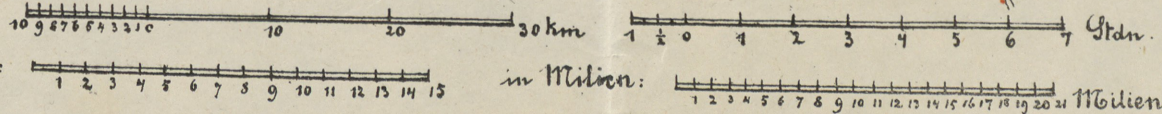 10 9 8 7 6 5 4 3 2 1 0 10 20 30 km
1 ½ 0 1 2 3 4 5 6 7 Stdn.
: 1 2 3 4 5 6 7 8 9 10 11 12 13 14 15
in Milien:
1 2 3 4 5 6 7 8 9 10 11 12 13 14 15 16 17 18 19 20 21 Milien